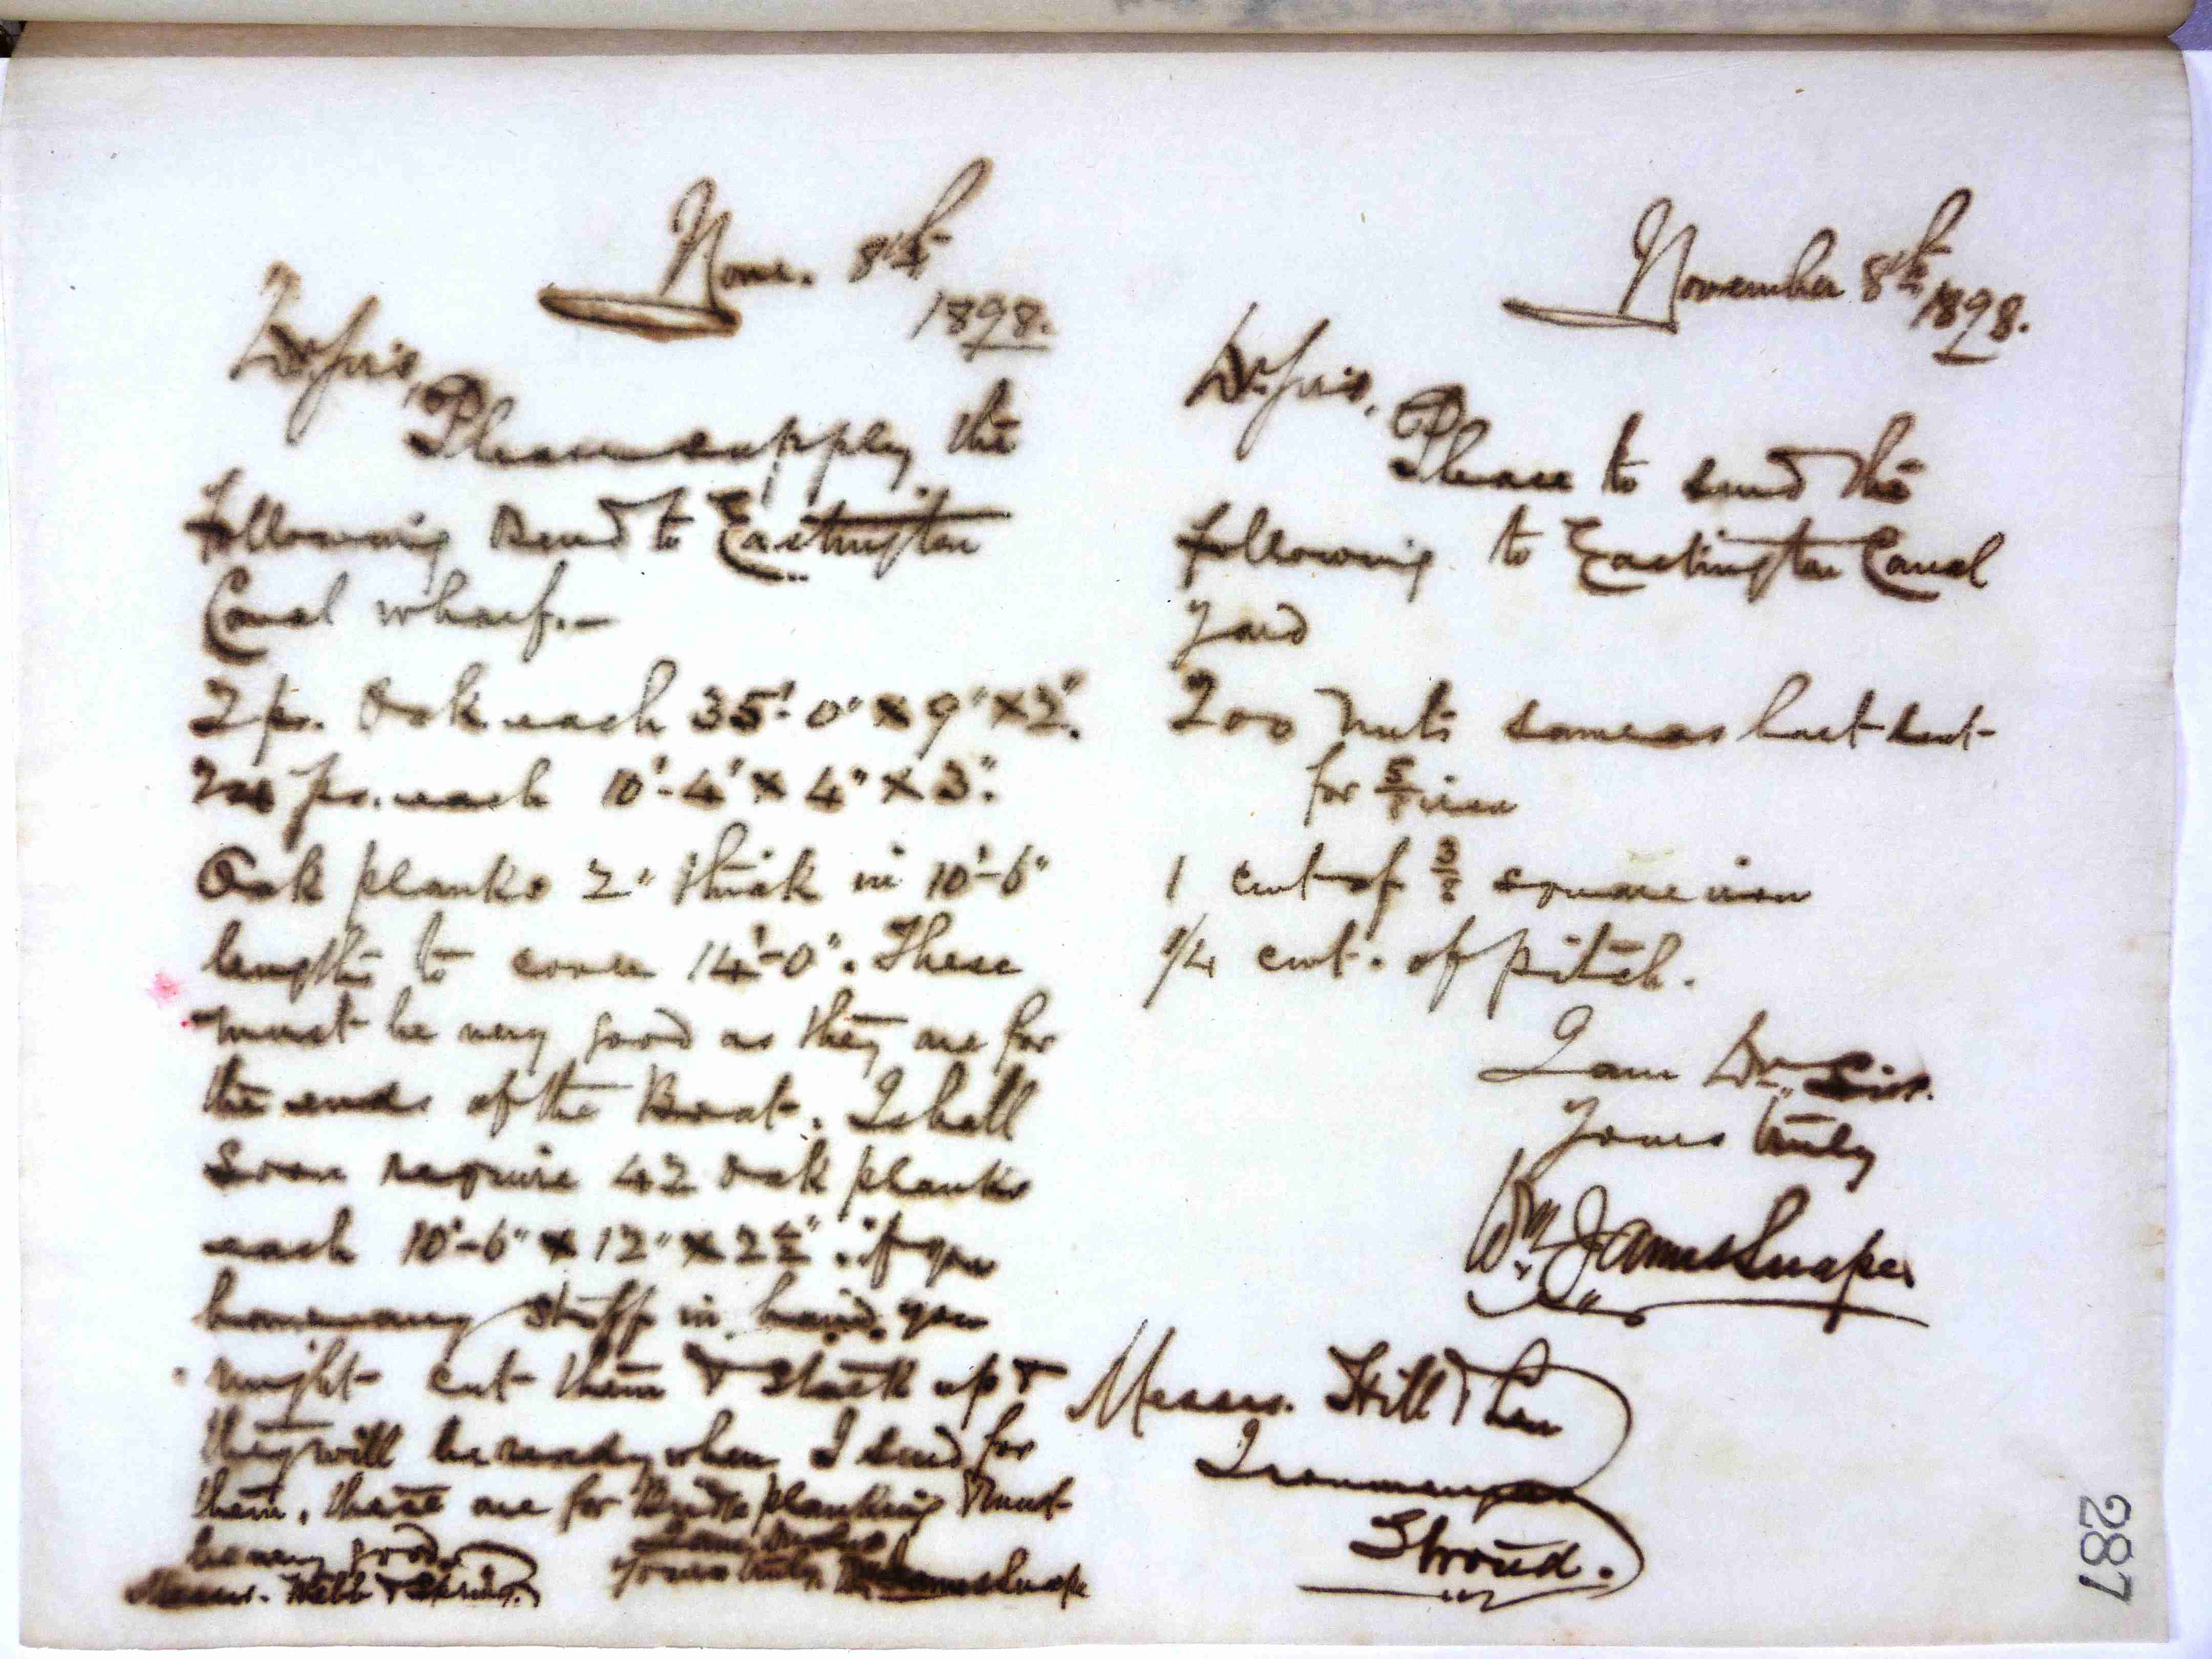 Nove. 8th
1898.
Dr. Sirs,
Please supply the
following & send to Eastington
Canal wharf.-
2 ps. Oak each 35'-0" x 9" x 2".
ps. each 10'-4" x 4" x 3".
Oak planks 2" thick in 10'-6"
lengths to cover 14'-0". These
must be very good as they are for
the ends of the Boat. I shall
soon require 42 Oak planks
each 10'-6" x 12" x 2½" if you
have any stuff in hand, you
might cut them & stack up &
they will be ready when I send for
them, these are for planking & must
be very good.
I am Dr Sirs
Yours truly Wm James Snape
Messrs. Webb & Spring.
November 8th 1898.
Dr. Sirs,
Please to send the
following to Eastington Canal
Yard
200 Nuts same as last sent
for 5/8 iron
1 cwt of 3/8 square iron
1/4 cwt. of pitch.
I am Dr. Sirs.
Yours truly
Wm. James Snape
Messrs. Hill &
Ironmongers
Stroud.
287